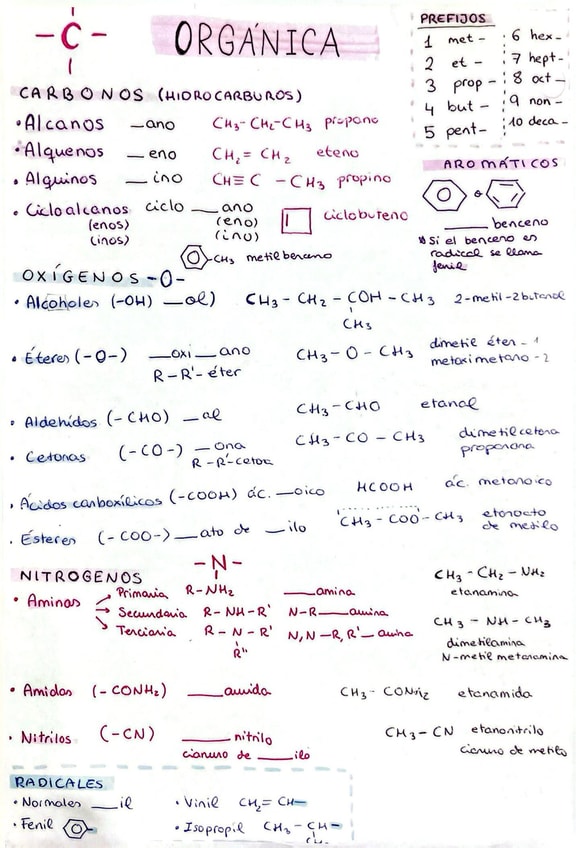 - C -
ORGÁNICA
PREFIJOS
1 met-
2 et-
3 prop-
4 but-
5 pent-
6 hex-
7 hept-
8 oct-
9 non-
10 deca-
CARBONOS (HIDROCARBUROS)
• Alcanos __ano CH₃-CH₂-CH₃ propano
• Alquenos __eno CH₂=CH₂ eteno
• Alquinos __ino CH≡C-CH₃ propino
• Cicloalcanos ciclo __ano ciclobuteno
(enos) (eno)
(inos) (ino)
CH₃ metilbenceno
AROMÁTICOS
o
__benceno
* Si el benceno es
radical se llama
fenil
OXÍGENOS -O-
• Alcoholes (-OH) __ol) CH₃-CH₂-COH-CH₃ 2-metil-2butanol
CH₃
• Éteres (-O-) __oxi__ano CH₃-O-CH₃ dimetil éter - 1
R-R'-éter metoximetano - 2
• Aldehídos (-CHO) __al CH₃-CHO etanal
• Cetonas (-CO-) __ona CH₃-CO-CH₃ dimetilcetona
R-R'-cetona propanona
• Ácidos carboxílicos (-COOH) ác. __oico HCOOH ác. metanoico
• Ésteres (-COO-) __ato de __ilo CH₃-COO-CH₃ etanoato
de metilo
NITROGENOS -N-
• Aminas
Primaria R-NH₂ __amina
Secundaria R-NH-R' N-R__amina
Terciaria R-N-R' N,N-R,R'__amina
R''
CH₃-CH₂-NH₂
etanamina
CH₃-NH-CH₃
dimetilamina
N-metil metanamina
• Amidas (-CONH₂) __amida CH₃-CONH₂ etanamida
• Nitrilos (-CN) __nitrilo CH₃-CN etanonitrilo
cianuro de __ilo cianuro de metilo
RADICALES
• Normales __il
• Fenil
• Vinil CH₂=CH-
• Isopropil CH₃-CH-